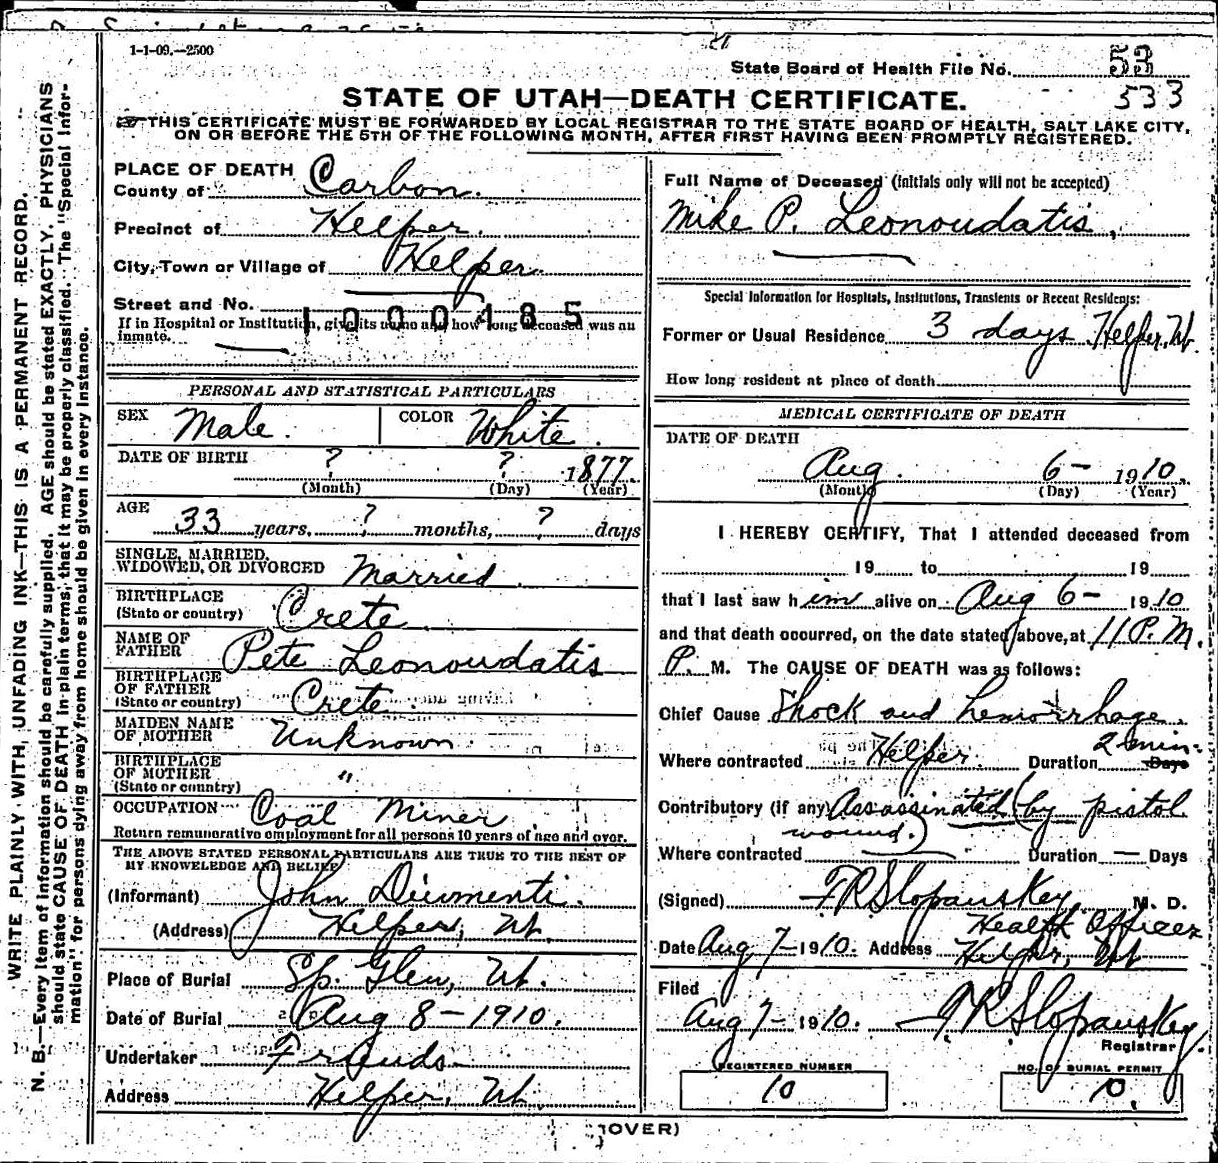 1-1-09.—2500
State Board of Health File No. 53
533
STATE OF UTAH—DEATH CERTIFICATE.
THIS CERTIFICATE MUST BE FORWARDED BY LOCAL REGISTRAR TO THE STATE BOARD OF HEALTH, SALT LAKE CITY,
ON OR BEFORE THE 5TH OF THE FOLLOWING MONTH, AFTER FIRST HAVING BEEN PROMPTLY REGISTERED.
N. B.—WRITE PLAINLY WITH UNFADING INK—THIS IS A PERMANENT RECORD.
Every item of information should be carefully supplied. AGE should be stated EXACTLY. PHYSICIANS
should state CAUSE OF DEATH in plain terms, that it may be properly classified. The "Special Infor-
mation" for persons dying away from home should be given in every instance.
PLACE OF DEATH
County of Carbon.
Precinct of Helper.
City, Town or Village of Helper
Street and No.
1000485
If in Hospital or Institution, give its name and how long deceased was an
inmate.
PERSONAL AND STATISTICAL PARTICULARS
SEX Male. COLOR White.
DATE OF BIRTH ? ? 1877.
(Month) (Day) (Year)
AGE 33 years, ? months, ? days
SINGLE, MARRIED,
WIDOWED, OR DIVORCED Married.
BIRTHPLACE
(State or country) Crete.
NAME OF
FATHER Pete Leonoudatis
BIRTHPLACE
OF FATHER
(State or country) Crete.
MAIDEN NAME
OF MOTHER Unknown
BIRTHPLACE
OF MOTHER
(State or country) "
OCCUPATION Coal Miner
Return remunerative employment for all persons 10 years of age and over.
THE ABOVE STATED PERSONAL PARTICULARS ARE TRUE TO THE BEST OF
MY KNOWLEDGE AND BELIEF
(Informant) John Diumenti.
(Address) Helper, Ut.
Place of Burial Sp. Glen, Ut.
Date of Burial Aug 8-1910.
Undertaker Friends
Address Helper, Ut.
Full Name of Deceased (Initials only will not be accepted)
Mike P. Leonoudatis,
Special Information for Hospitals, Institutions, Transients or Recent Residents:
Former or Usual Residence 3 days Helper, Ut.
How long resident at place of death
MEDICAL CERTIFICATE OF DEATH
DATE OF DEATH
Aug. 6- 1910.
(Month) (Day) (Year)
I HEREBY CERTIFY, That I attended deceased from
19 to 19
that I last saw him alive on Aug 6- 1910
and that death occurred, on the date stated above, at 11 P.M.
P. M. The CAUSE OF DEATH was as follows:
Chief Cause Shock and hemorrhage.
Where contracted Helper. Duration 2 min. Days
Contributory (if any) Assassinated (by pistol
wound.)
Where contracted Duration — Days
(Signed) F R Slopanskey, M. D.
Health Officer
Date Aug 7-1910. Address Helper, Ut
Filed
Aug 7-1910. F. R Slopanskey
Registrar
REGISTERED NUMBER
10
NO. OF BURIAL PERMIT
10.
(OVER)